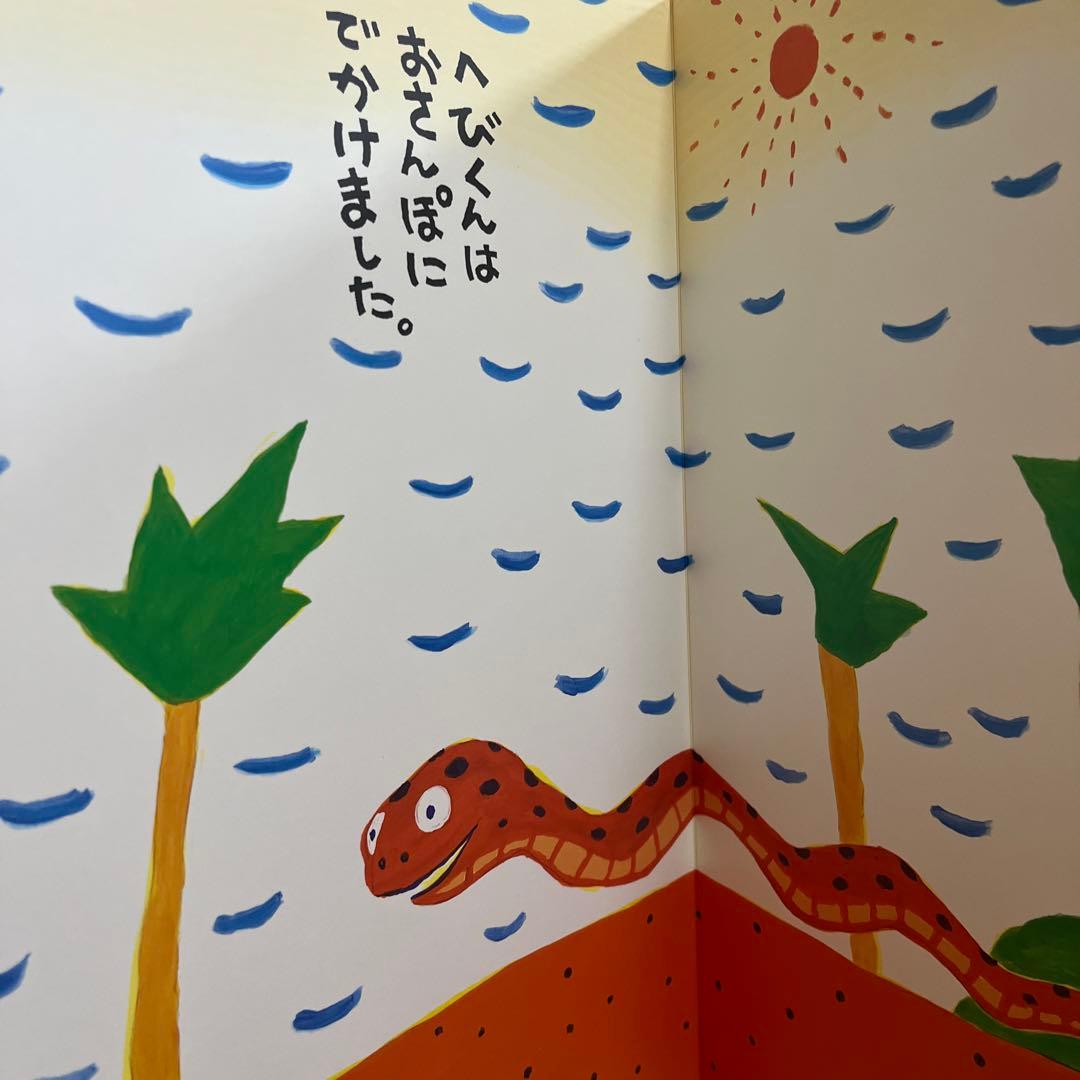 へびくんは
おさんぽに
でかけました。